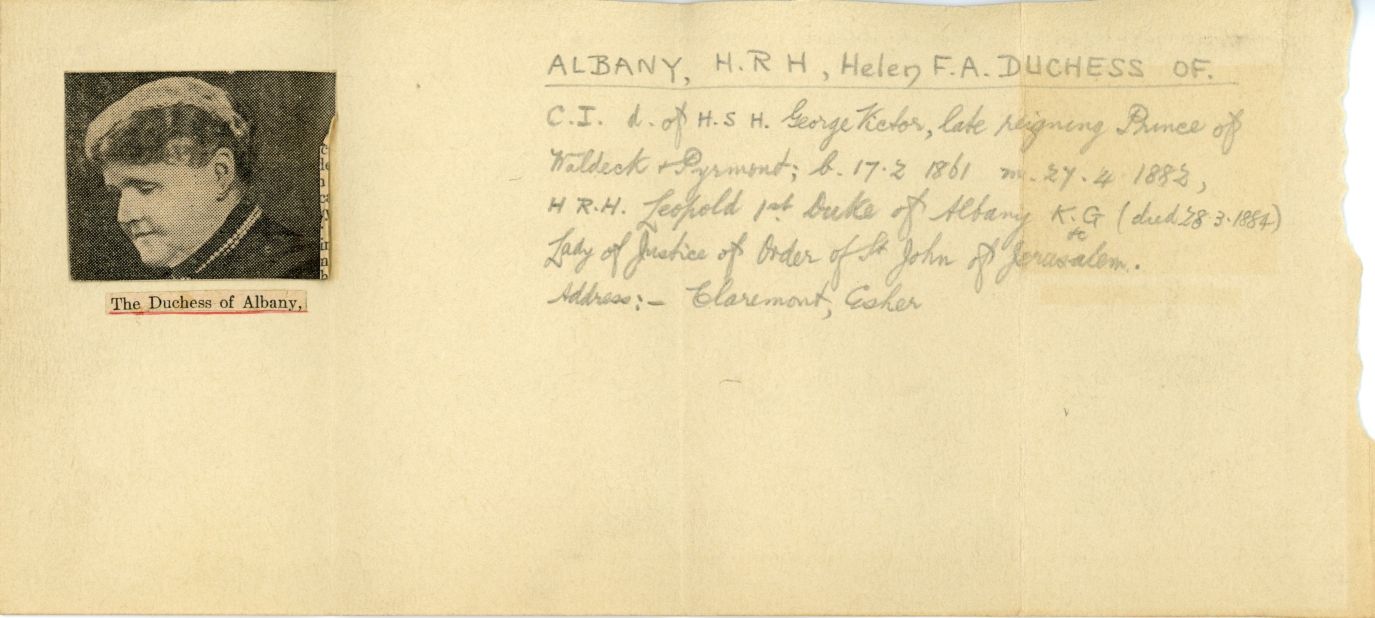 ALBANY, H.R H, Helen F.A. DUCHESS OF.
C.I. d. of H.S H. George Victor, late reigning Prince of
Waldeck + Pyrmont; b. 17.2 1861 m. 27.4 1882,
H R.H. Leopold 1st Duke of Albany K.G (died 28 3.1884)
Lady of Justice of Order of St John of Jerusalem.
Address:- Claremont, Esher
The Duchess of Albany,